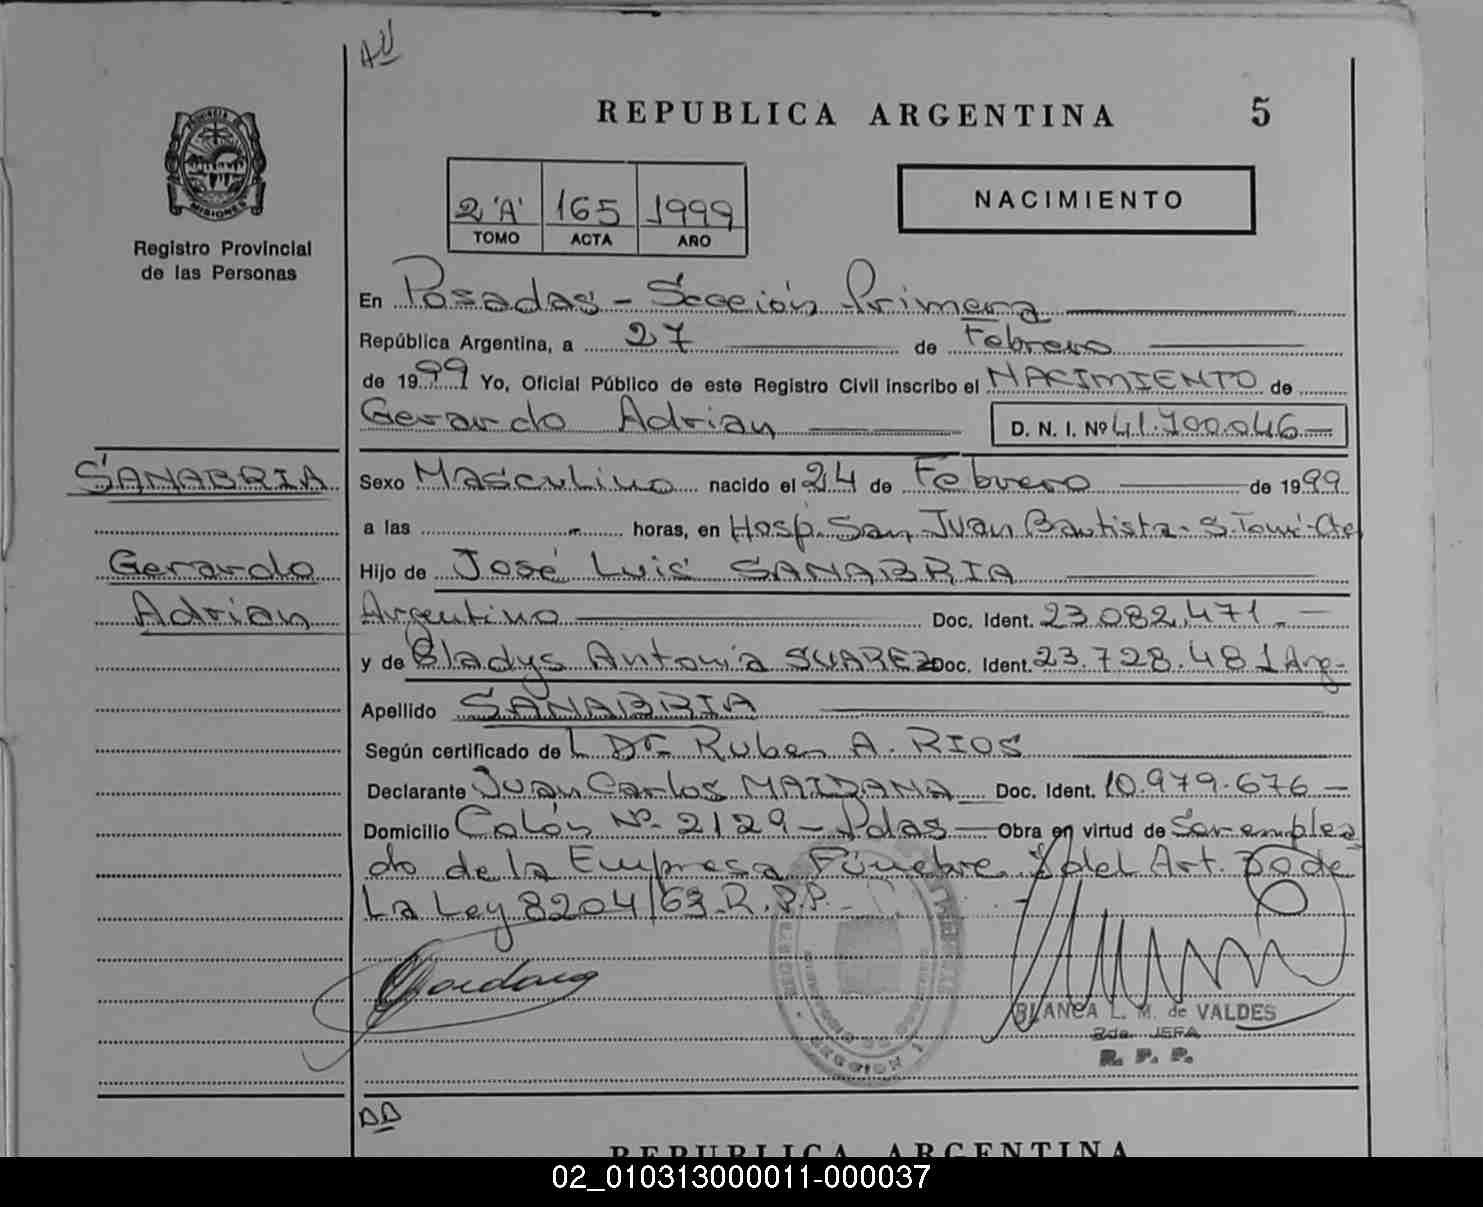 AU
REPUBLICA ARGENTINA 5
2 'A' 165 1999
TOMO ACTA AÑO
NACIMIENTO
MISIONES
Registro Provincial
de las Personas
En Posadas - Sección Primera
República Argentina, a 27 de Febrero
de 1999 Yo, Oficial Público de este Registro Civil inscribo el NACIMIENTO de
Gerardo Adrian D. N. I. Nº 41.700.046 —
SANABRIA
Gerardo
Adrian
Sexo Masculino nacido el 24 de Febrero de 1999
a las - horas, en Hosp. San Juan Bautista - S. Tomé - Ctes
Hijo de José Luis SANABRIA
Argentino Doc. Ident. 23.082.471.-
y de Gladys Antonia SUAREZ Doc. Ident. 23.728.481 Arg-
Apellido SANABRIA
Según certificado de L Dr. Ruben A. RIOS
Declarante Juan Carlos MAIDANA Doc. Ident. 10.979.676 —
Domicilio Colón Nº 2129 - Pdas — Obra en virtud de Ser emplea
do de la Empresa Fúnebre y del Art. 30 de
La Ley 8204/63. R.P.P. -
BLANCA L. M. de VALDES
2da. JEFA
R. P. P.
DD
REPUBLICA ARGENTINA
02_010313000011-000037